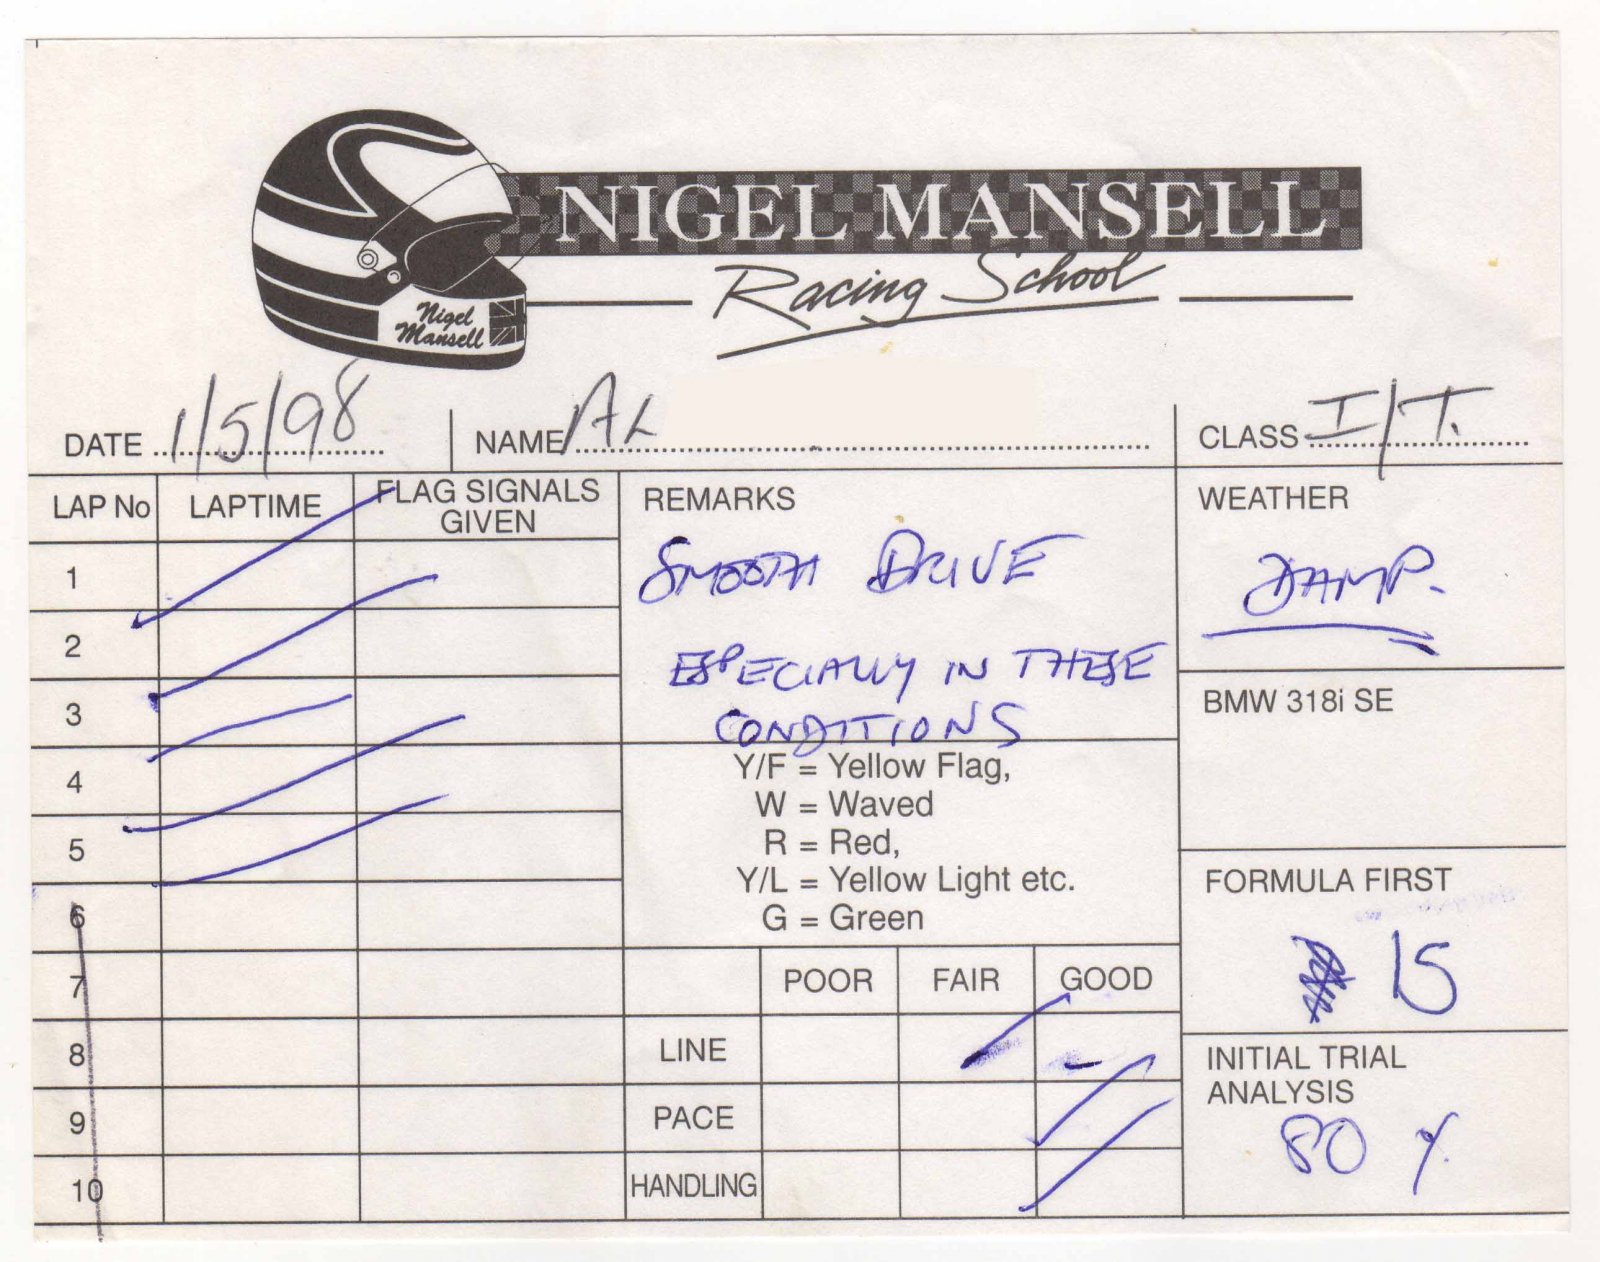 NIGEL MANSELL
Racing School
Nigel
Mansell
DATE 1/5/98 NAME AL CLASS I/T.
LAP No LAPTIME FLAG SIGNALS GIVEN
1
2
3
4
5
6
7
8
9
10
REMARKS
SMOOTH DRIVE
ESPECIALLY IN THESE
CONDITIONS
Y/F = Yellow Flag,
W = Waved
R = Red,
Y/L = Yellow Light etc.
G = Green
POOR FAIR GOOD
LINE
PACE
HANDLING
WEATHER
DAMP.
BMW 318i SE
FORMULA FIRST
15
INITIAL TRIAL
ANALYSIS
80 %